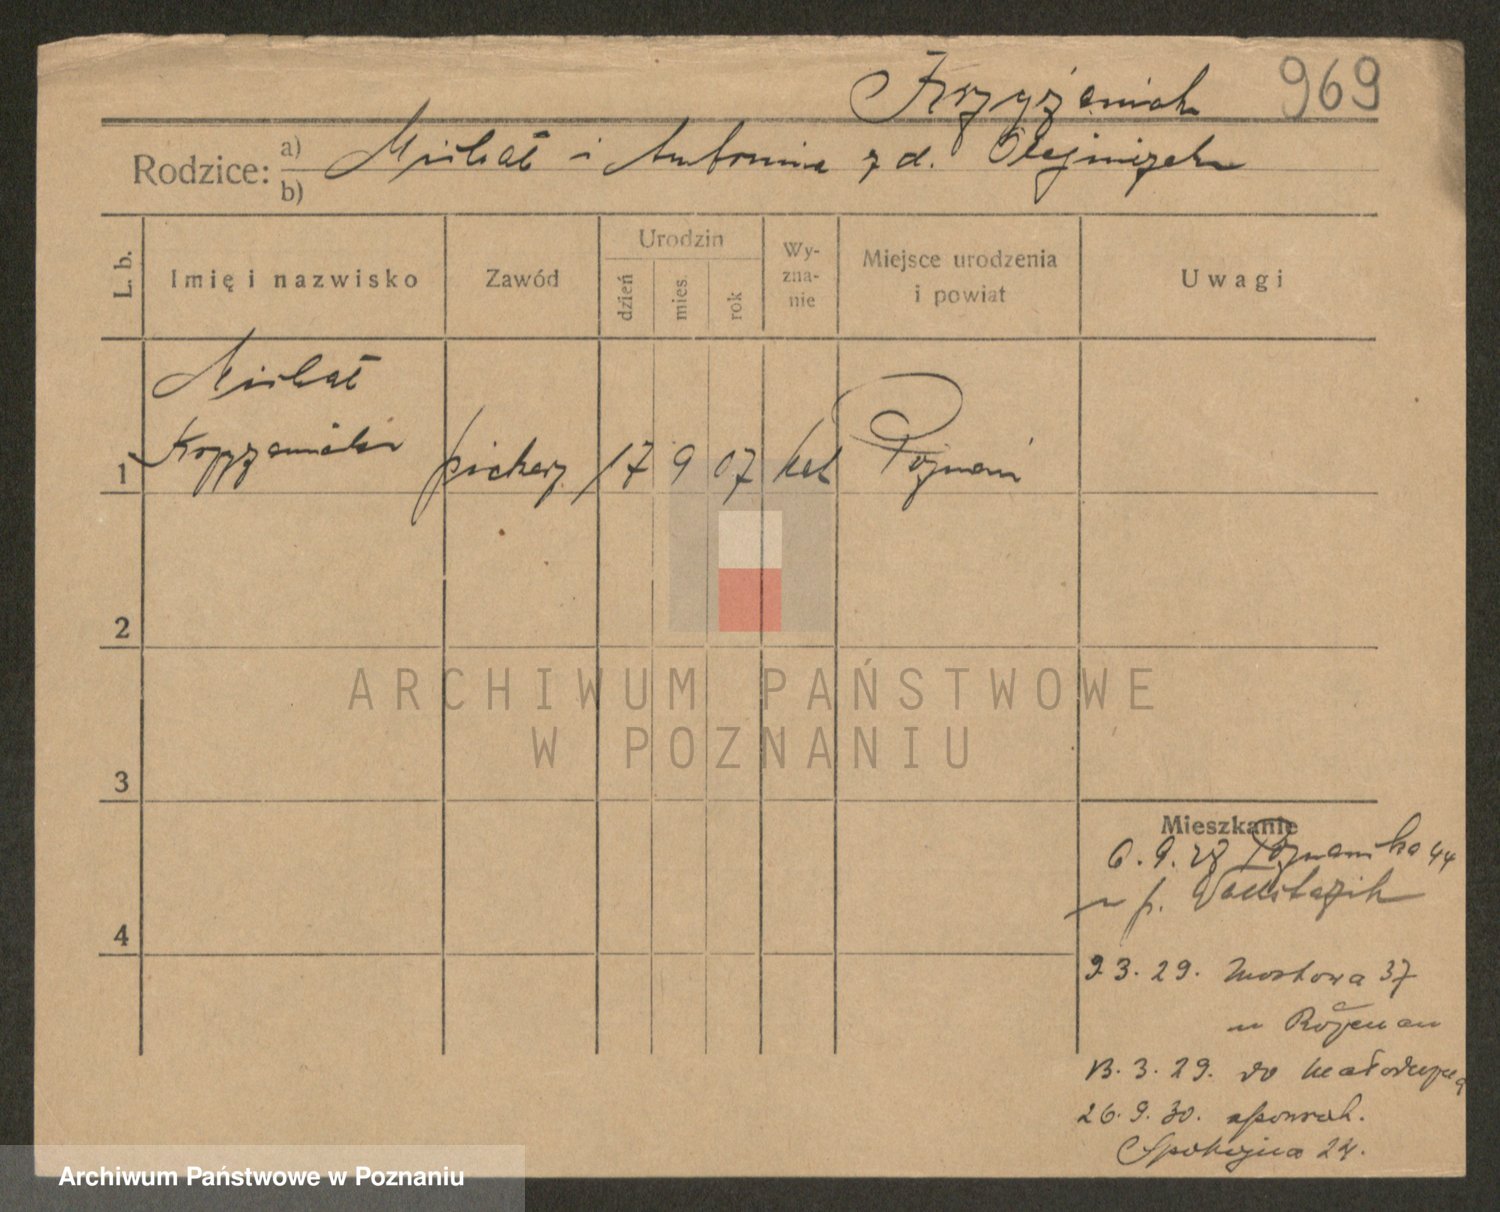 Krzyżaniak 969
Rodzice: a) Michał i Antonina z d. Olejniczak
b)
L. b. Imię i nazwisko Zawód Urodzin dzień mies. rok Wy-zna-nie Miejsce urodzenia i powiat Uwagi
Michał
1 Krzyżaniak piekarz 17 9 07 kat Poznań
2
3
4
Mieszkanie
6. 9. 28 Poznańska 44
u p.
9. 3. 29. Mostowa 37
u
13. 3. 29. do
26. 9. 30.
Spokojna 24.
ARCHIWUM PAŃSTWOWE
W POZNANIU
Archiwum Państwowe w Poznaniu